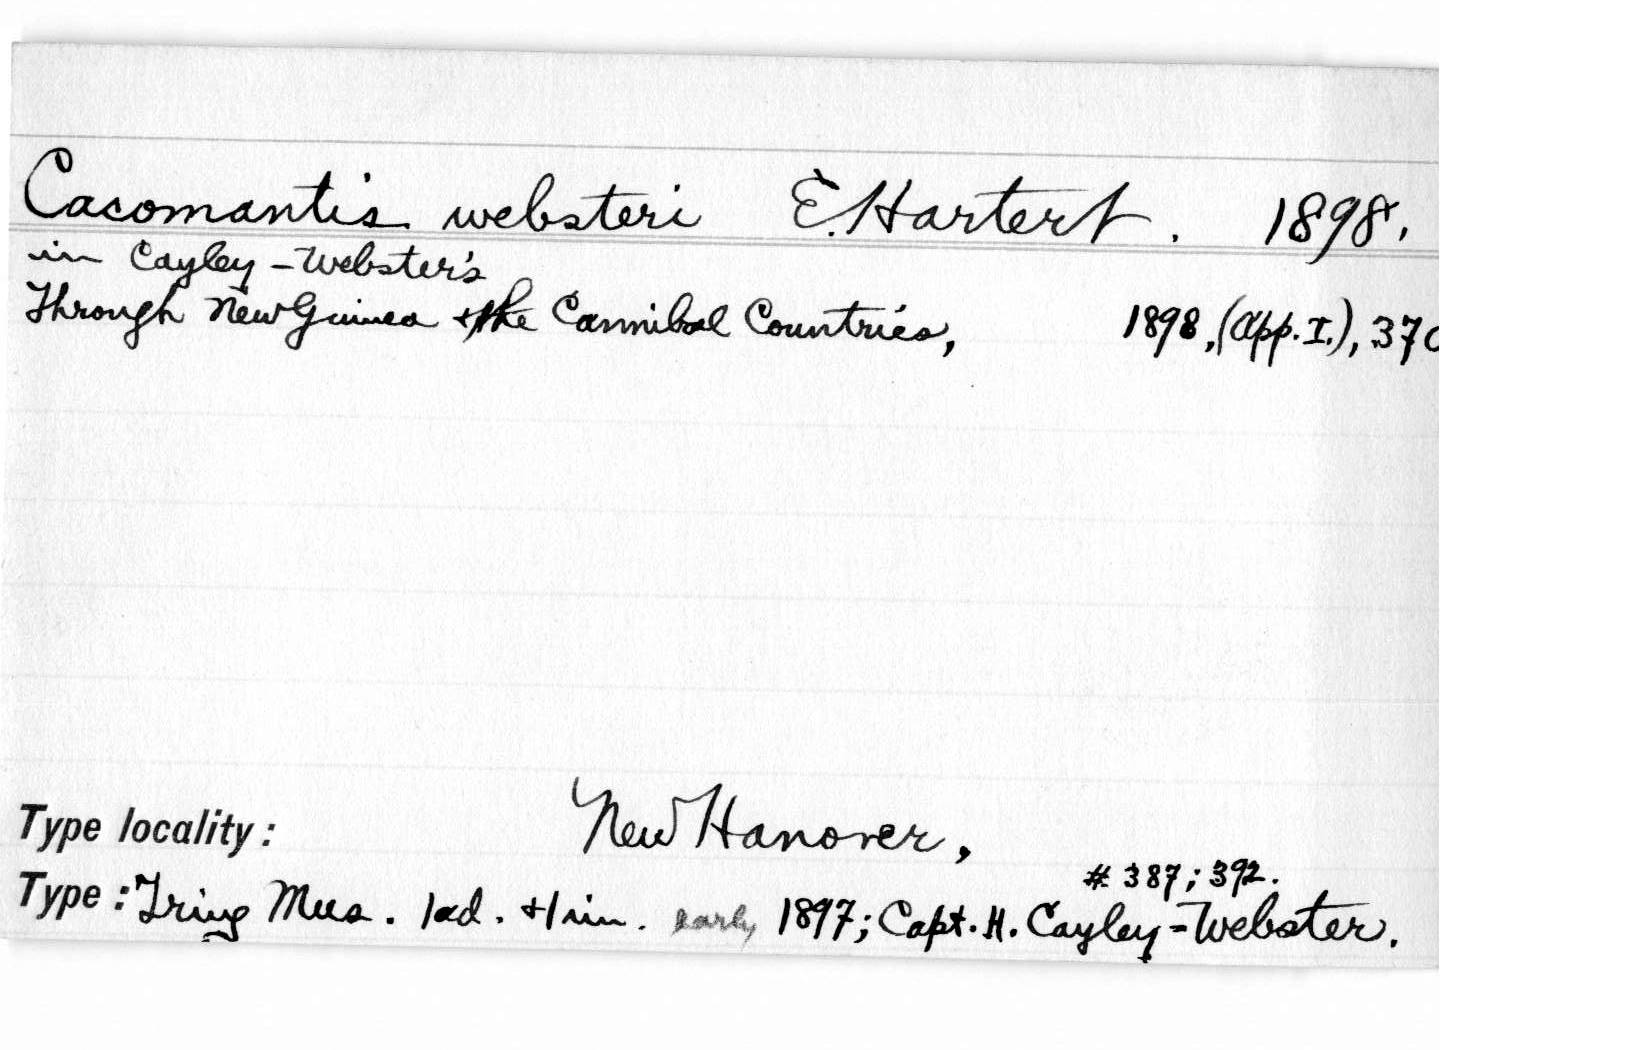 Cacomantis websteri E. Hartert. 1898.
in Cayley-Webster's
Through New Guinea & the Cannibal Countries, 1898, (App. I.), 370
Type locality: New Hanover,
# 387; 392.
Type: Tring Mus. 1 ad. + 1 im. early 1897; Capt. H. Cayley-Webster.